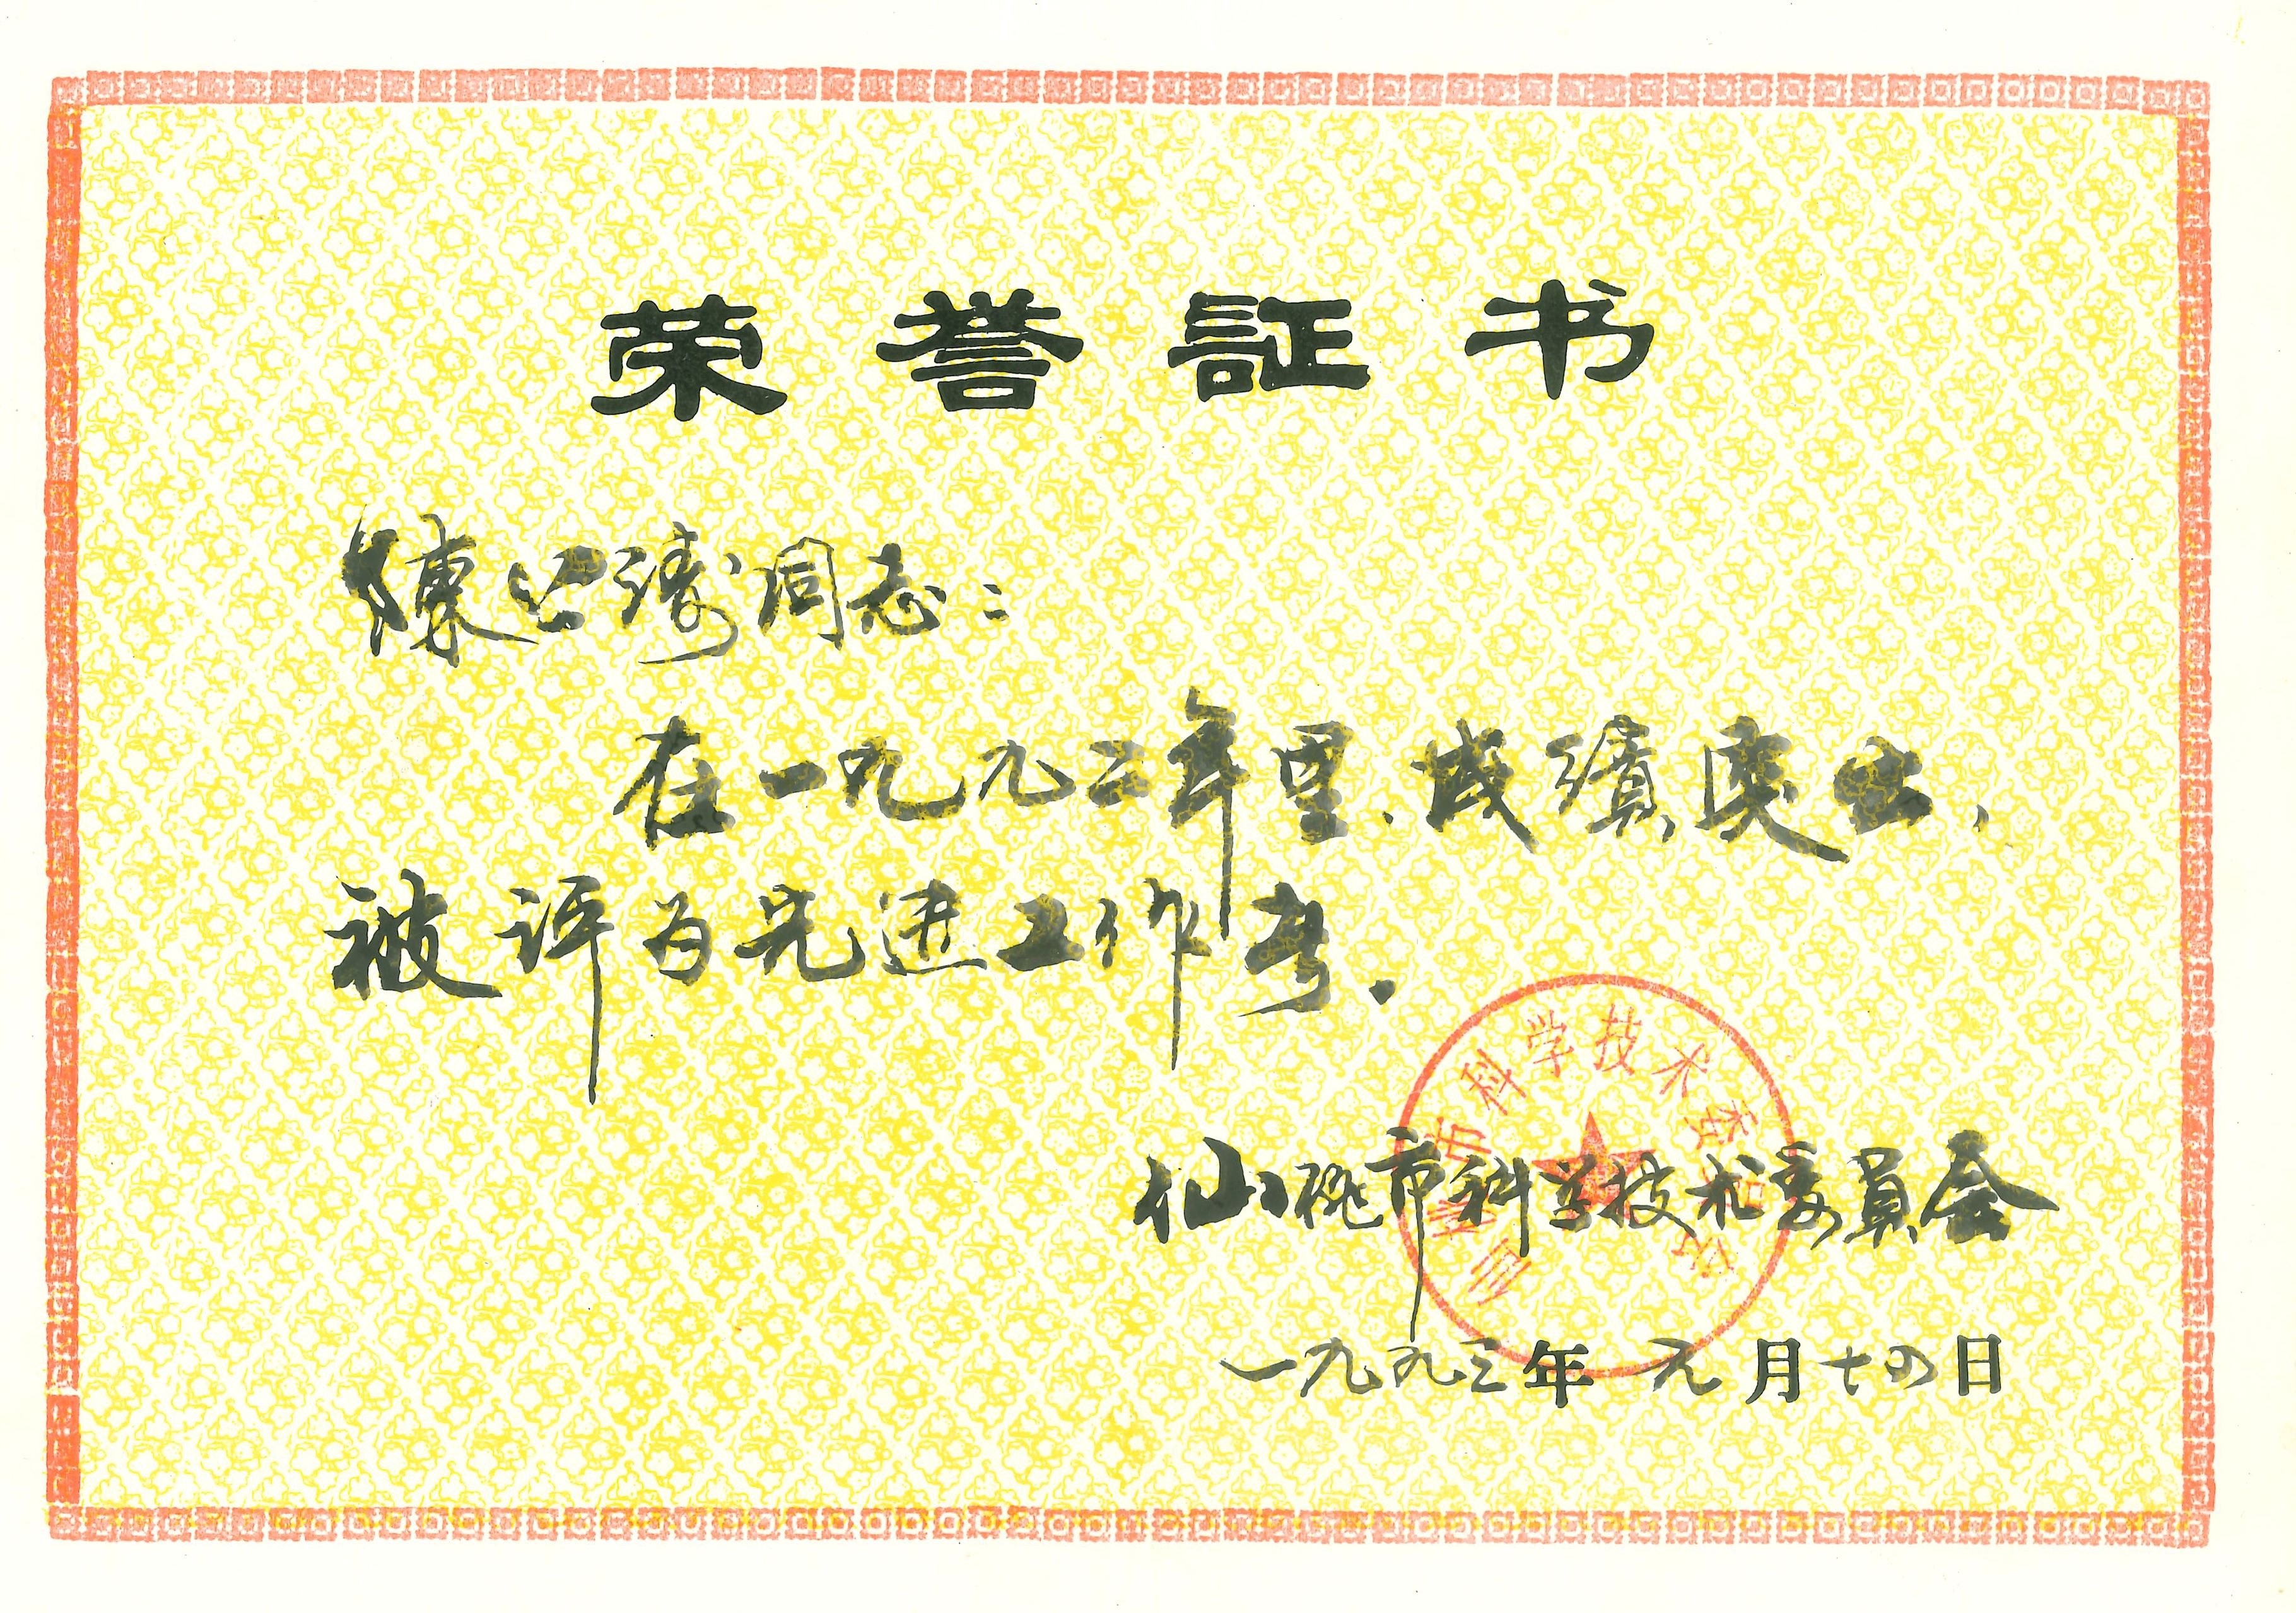 荣誉証书
陳公濤同志：
在一九九二年里，成績突出，
被评为先进工作者．
仙桃市科学技术委員会
仙桃市科学技术委员会
一九九三年元月十四日